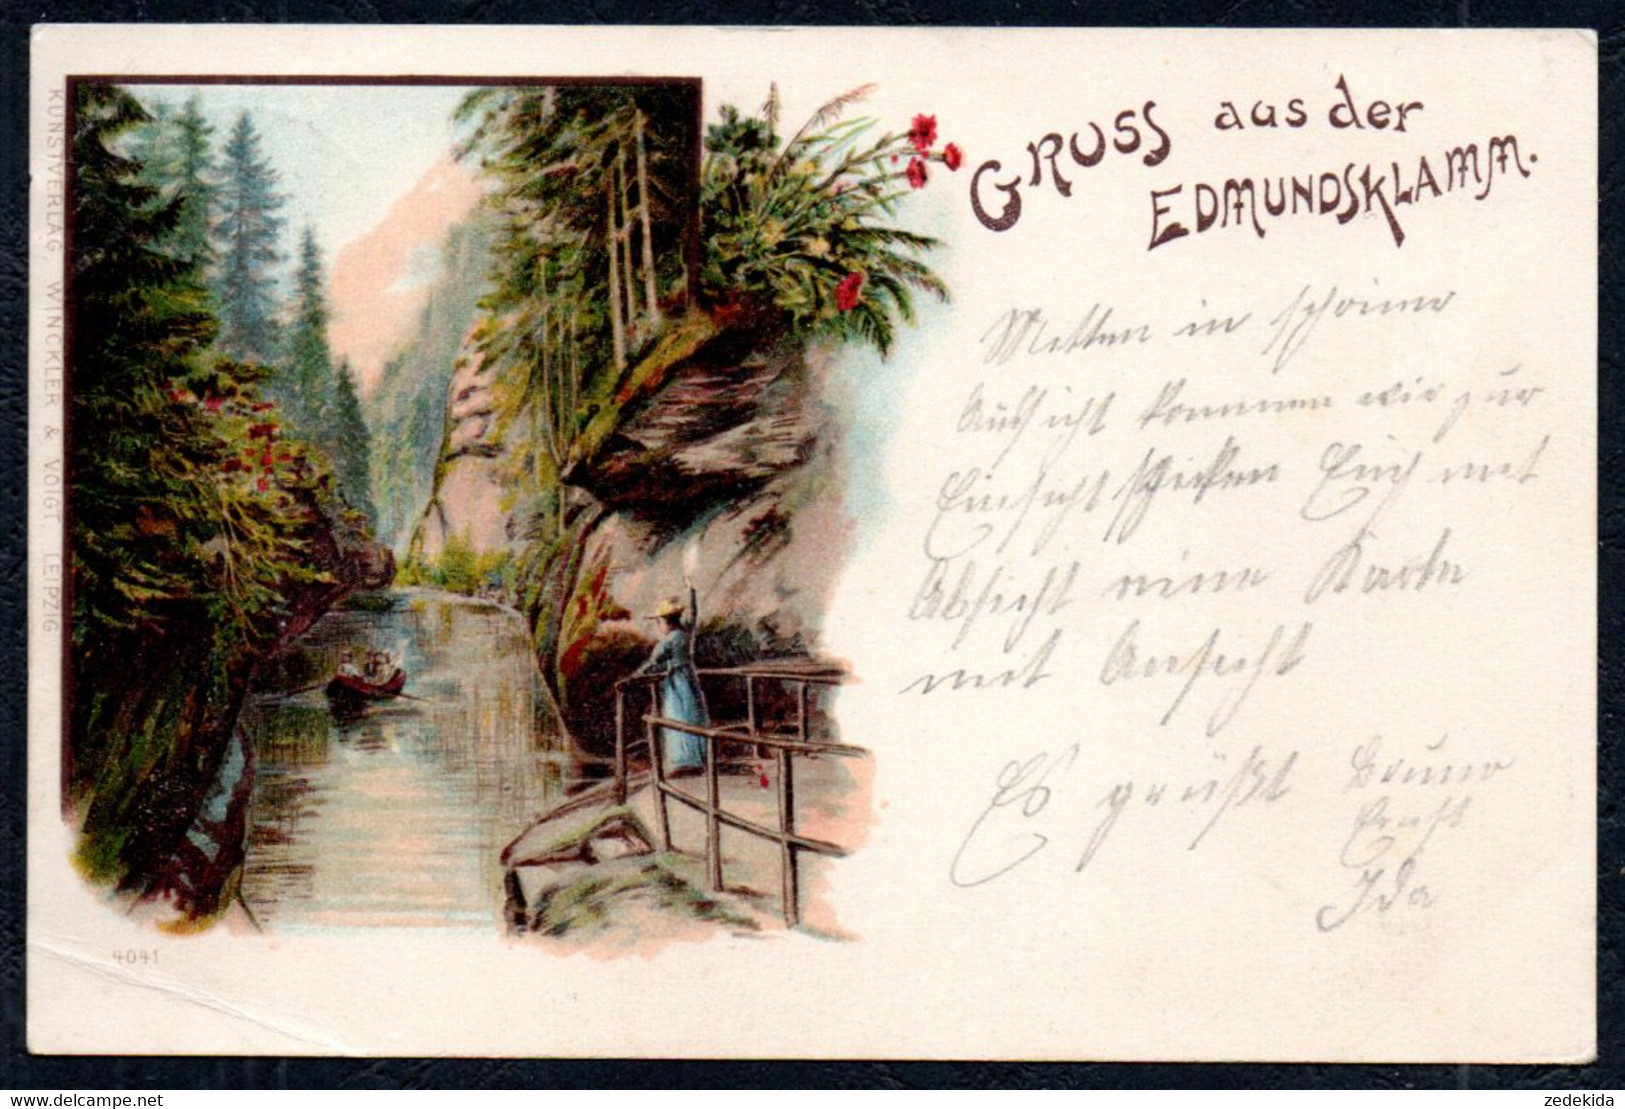 GRUSS aus der
EDMUNDSKLAMM.
Mitten in schöner
Aussicht kommen wir zur
Einsicht schicken Euch mit
Absicht eine Karte
mit Ansicht
Es grüßt Bruno
Ernst
Ida
KUNSTVERLAG, WINCKLER & VOIGT, LEIPZIG
4041
www.delcampe.net
zedekida